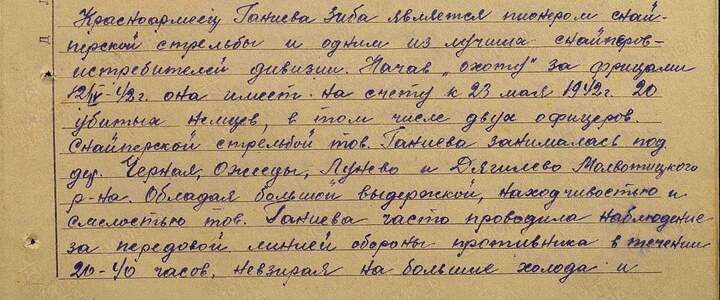 Красноармеец Ганиева Зиба является пионером снай-
перской стрельбы и одним из лучших снайперов-
истребителей дивизии. Начав „охоту" за фрицами
12/IV-42г. она имеет на счету к 23 мая 1942г. 20
убитых немцев, в том числе двух офицеров.
Снайперской стрельбой тов. Ганиева занималась под
дер. Черная, Ожееды, Лунево и Дягилево Молвотицкого
р-на. Обладая большой выдержкой, находчивостью и
смелостью тов. Ганиева часто проводила наблюдение
за передовой линией обороны противника в течении
20-40 часов, невзирая на большие холода и